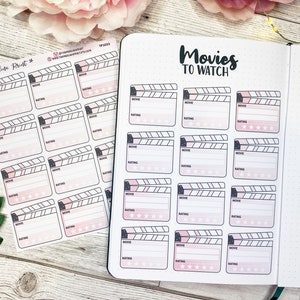 Print
MOVIE
RATING
MOVIE
RATING
MOVIE
RATING
MOVIE
RATING
MOVIE
RATING
MOVIE
RATING
Movies
TO WATCH
MOVIE MOVIE MOVIE
RATING RATING RATING
MOVIE MOVIE MOVIE
RATING RATING RATING
MOVIE MOVIE MOVIE
RATING RATING RATING
MOVIE MOVIE MOVIE
RATING RATING RATING